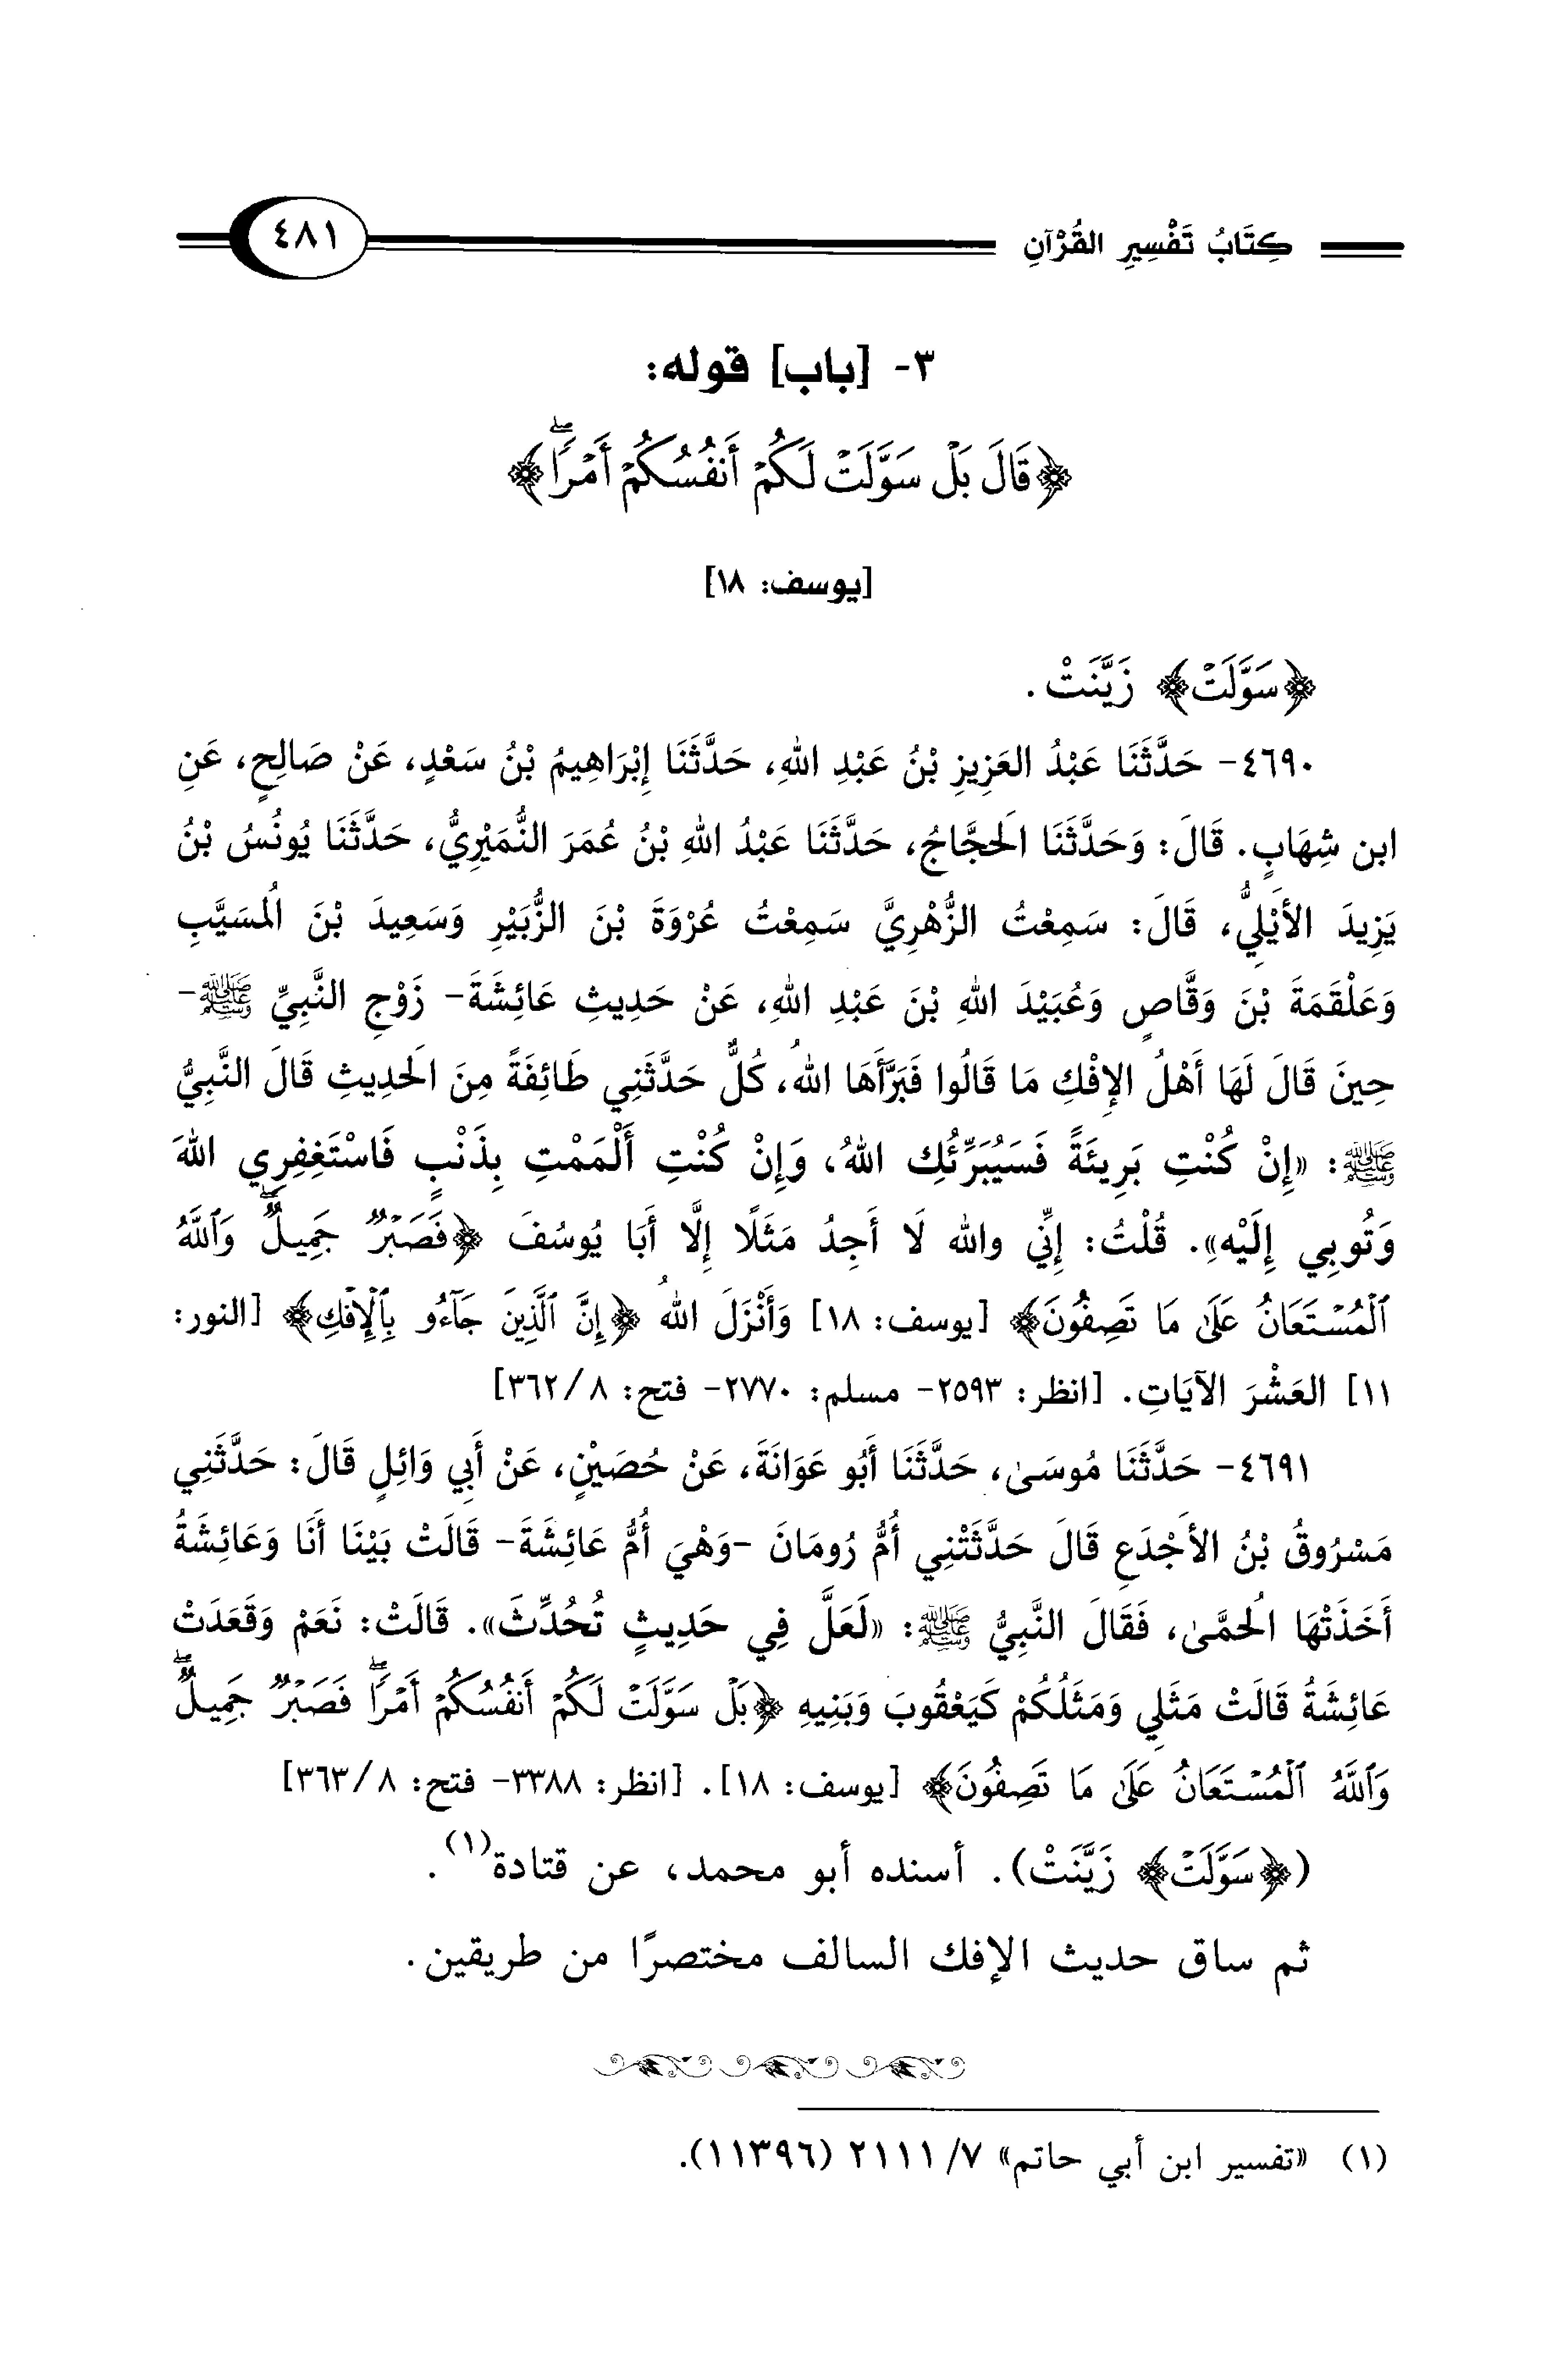 كِتَابُ تَفْسِيرِ القُرْآنِ
٤٨١
٣- [باب] قوله:
﴿قَالَ بَلْ سَوَّلَتْ لَكُمْ أَنفُسُكُمْ أَمْرًاۖ﴾
[يوسف: ١٨]
﴿سَوَّلَتْ﴾ زَيَّنَتْ.
٤٦٩٠- حَدَّثَنَا عَبْدُ العَزِيزِ بْنُ عَبْدِ اللهِ، حَدَّثَنَا إِبْرَاهِيمُ بْنُ سَعْدٍ، عَنْ صَالِحٍ، عَنِ
ابن شِهَابٍ. قَالَ: وَحَدَّثَنَا الَحجَّاجُ، حَدَّثَنَا عَبْدُ اللهِ بْنُ عُمَرَ النُّمَيْرِيُّ، حَدَّثَنَا يُونُسُ بْنُ
يَزِيدَ الأَيْلِيُّ، قَالَ: سَمِعْتُ الزُّهْرِيَّ سَمِعْتُ عُرْوَةَ بْنَ الزُّبَيْرِ وَسَعِيدَ بْنَ الُمسَيَّبِ
وَعَلْقَمَةَ بْنَ وَقَّاصٍ وَعُبَيْدَ اللهِ بْنَ عَبْدِ اللهِ، عَنْ حَدِيثِ عَائِشَةَ- زَوْجِ النَّبِيِّ ﷺ-
حِينَ قَالَ لَهَا أَهْلُ الإِفْكِ مَا قَالُوا فَبَرَّأَهَا اللهُ، كُلٌّ حَدَّثَنِي طَائِفَةً مِنَ الَحدِيثِ قَالَ النَّبِيُّ
ﷺ: «إِنْ كُنْتِ بَرِيئَةً فَسَيُبَرِّئُكِ اللهُ، وَإِنْ كُنْتِ أَلْمَمْتِ بِذَنْبٍ فَاسْتَغِفِرِي اللهَ
وَتُوبِي إِلَيْهِ». قُلْتُ: إِنِّي والله لَا أَجِدُ مَثَلًا إِلَّا أَبَا يُوسُفَ ﴿فَصَبْرٌ جَمِيلٌۖ وَٱللَّهُ
ٱلْمُسْتَعَانُ عَلَىٰ مَا تَصِفُونَ﴾ [يوسف: ١٨] وَأَنْزَلَ اللهُ ﴿إِنَّ ٱلَّذِينَ جَآءُو بِٱلْإِفْكِ﴾ [النور:
١١] العَشْرَ الآيَاتِ. [انظر: ٢٥٩٣- مسلم: ٢٧٧٠- فتح: ٨/ ٣٦٢]
٤٦٩١- حَدَّثَنَا مُوسَىٰ، حَدَّثَنَا أَبُو عَوَانَةَ، عَنْ حُصَيْنٍ، عَنْ أَبِي وَائِلٍ قَالَ: حَدَّثَنِي
مَسْرُوقُ بْنُ الأَجْدَعِ قَالَ حَدَّثَتْنِي أُمُّ رُومَانَ -وَهْيَ أُمُّ عَائِشَةَ- قَالَتْ بَيْنَا أَنَا وَعَائِشَةُ
أَخَذَتْهَا الُحمَّىٰ، فَقَالَ النَّبِيُّ ﷺ: «لَعَلَّ فِي حَدِيثٍ تُحُدِّثَ». قَالَتْ: نَعَمْ وَقَعَدَتْ
عَائِشَةُ قَالَتْ مَثَلِي وَمَثَلُكُمْ كَيَعْقُوبَ وَبَنِيهِ ﴿بَلْ سَوَّلَتْ لَكُمْ أَنفُسُكُمْ أَمْرًاۖ فَصَبْرٌ جَمِيلٌۖ
وَٱللَّهُ ٱلْمُسْتَعَانُ عَلَىٰ مَا تَصِفُونَ﴾ [يوسف: ١٨]. [انظر: ٣٣٨٨- فتح: ٨/ ٣٦٣]
(﴿سَوَّلَتْ﴾ زَيَّنَتْ). أسنده أبو محمد، عن قتادة(١).
ثم ساق حديث الإفك السالف مختصرًا من طريقين.
(١) «تفسير ابن أبي حاتم» ٧/ ٢١١١ (١١٣٩٦).